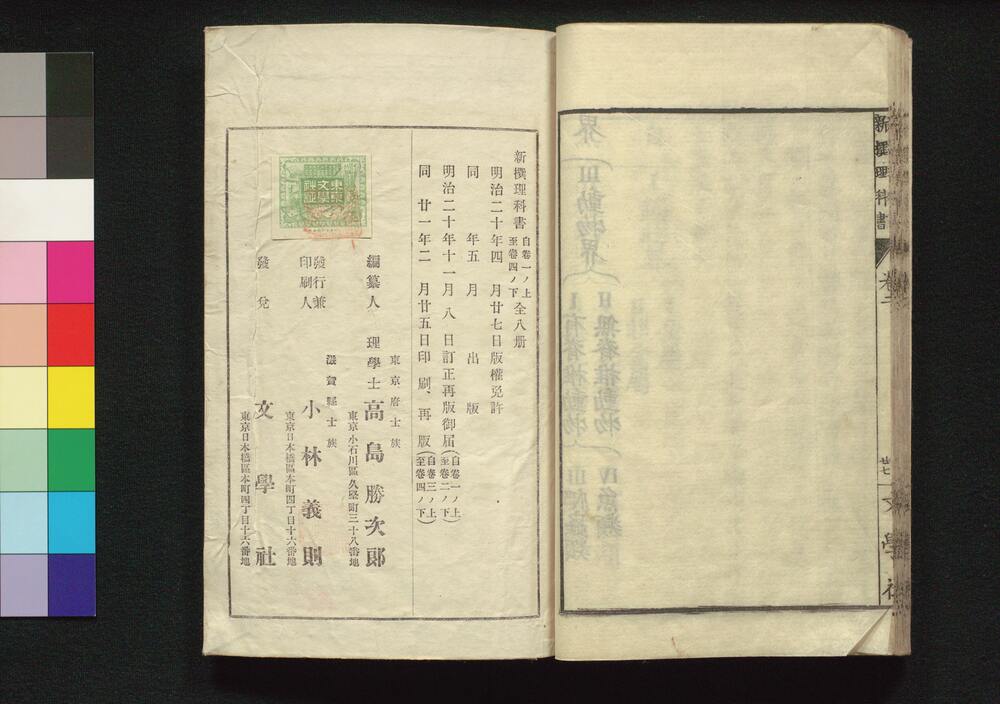 新撰理科書
卷二
廿七
文學社
新撰理科書 自卷一ノ上 至卷四ノ下 全八册
明治二十年四月廿七日版權免許
同年五月出版
明治二十年十一月八日訂正再版御届(自卷一ノ上 至卷二ノ下)
同廿一年二月廿五日印刷、再版(自卷三ノ上 至卷四ノ下)
東京府士族
編纂人 理學士 高島勝次郎
東京小石川區久堅町三十八番地
滋賀縣士族
發行兼印刷人 小林義則
東京日本橋區本町四丁目十六番地
發兌 文學社
東京日本橋區本町四丁目十六番地
東京
文學
社